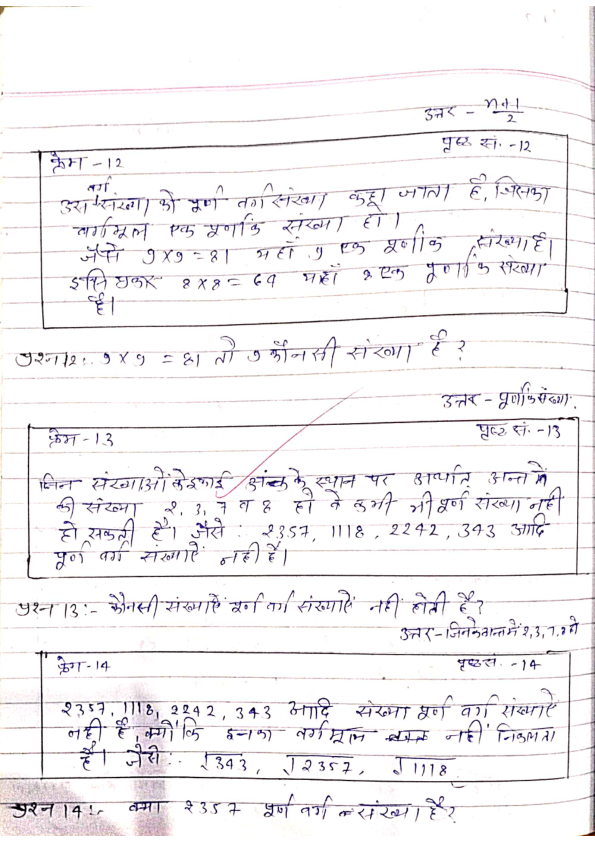 उत्तर - n+1/2
फ्रेम - 12
पृष्ठ सं. - 12
उस वर्ग संख्या को पूर्ण वर्ग संख्या कहा जाता है, जिसका
वर्गमूल एक पूर्णांक संख्या हो।
जैसे 9×9=81 यहाँ 9 एक पूर्णांक संख्या है।
इसी प्रकार 8×8=64 यहाँ 8 एक पूर्णांक संख्या
है।
प्रश्न 12:. 9×9 = 81 तो 9 कौनसी संख्या है ?
उत्तर - पूर्णांक संख्या.
फ्रेम - 13
पृष्ठ सं. - 13
जिन संख्याओं के इकाई अंक के स्थान पर अर्थात् अन्त में
की संख्या 2, 3, 7 व 8 हो वे कभी भी पूर्ण संख्या नही
हो सकती है। जैसे : 2357, 1118, 2242, 343 आदि
पूर्ण वर्ग संख्याऐं नही है।
प्रश्न 13:- कौनसी संख्याऐं पूर्ण वर्ग संख्याऐं नहीं होती है?
उत्तर - जिनके अन्त में 2,3,7,8 हो
फ्रेम - 14
पृष्ठ सं. - 14
2357, 1118, 2242, 343 आदि संख्या पूर्ण वर्ग संख्याऐं
नही है, क्योंकि इनका वर्गमूल नहीं निकलता
है। जैसे :. √343, √2357, √1118
प्रश्न 14:- क्या 2357 पूर्ण वर्ग संख्या है?